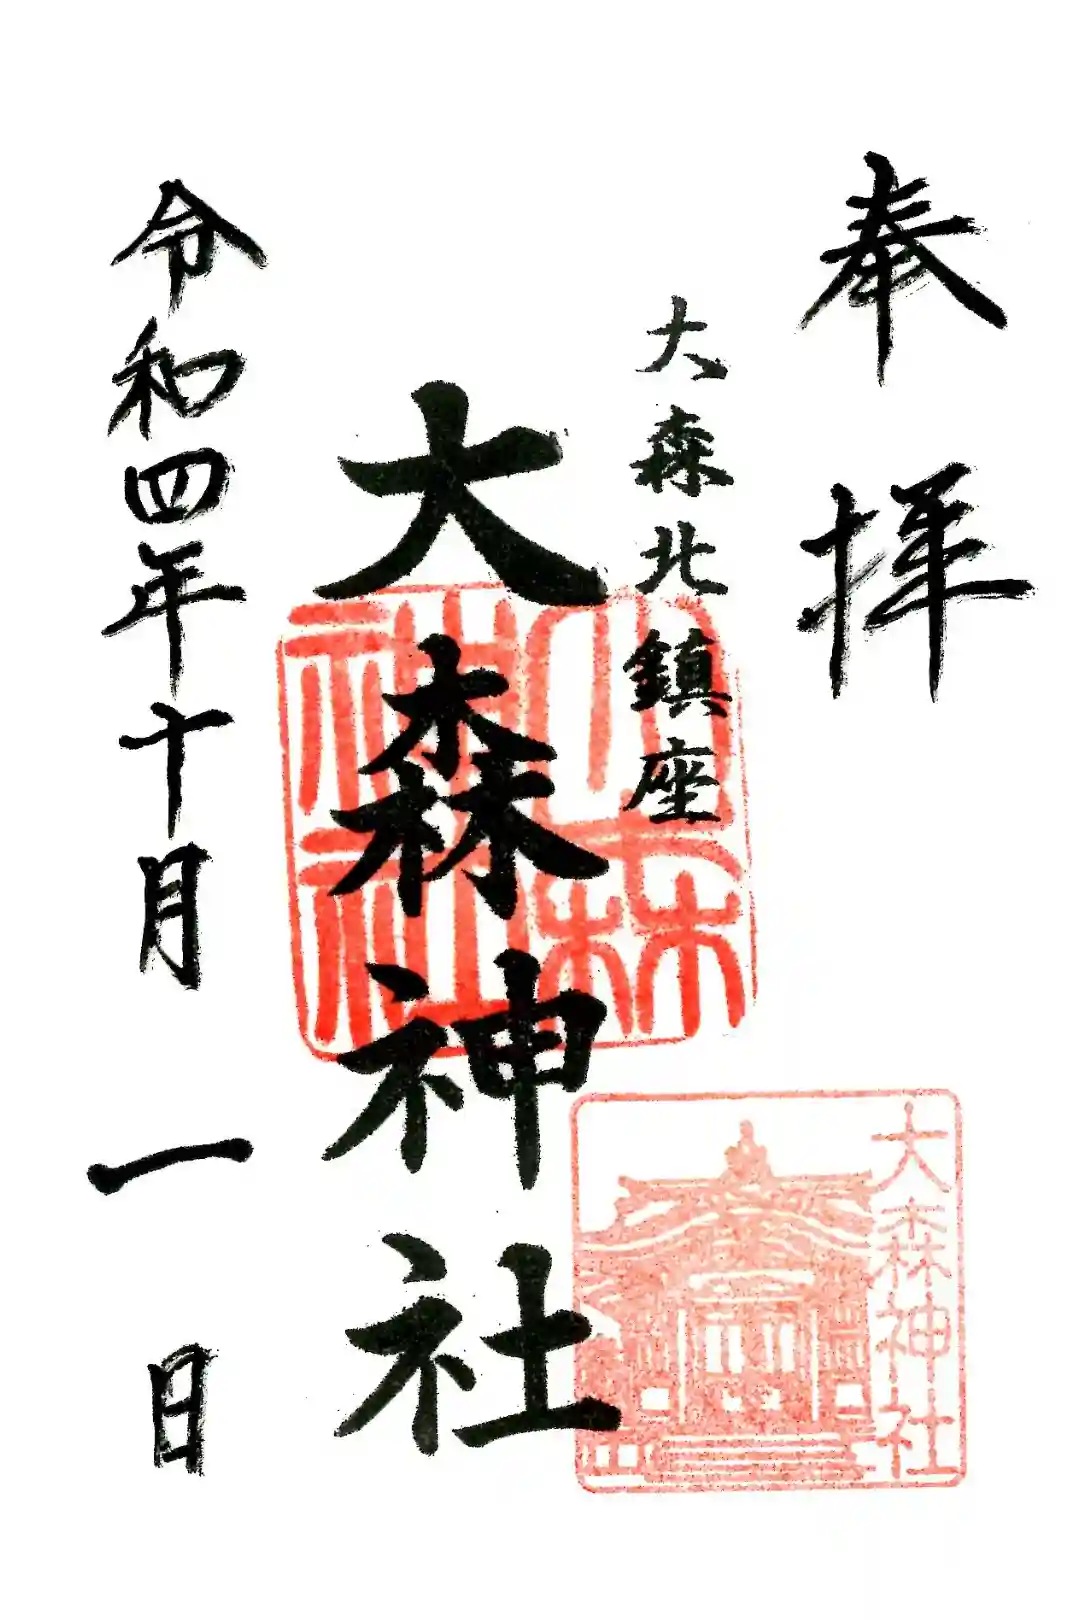 奉拝
大森北鎮座
大森神社
令和四年十月一日
大森神社
大森神社